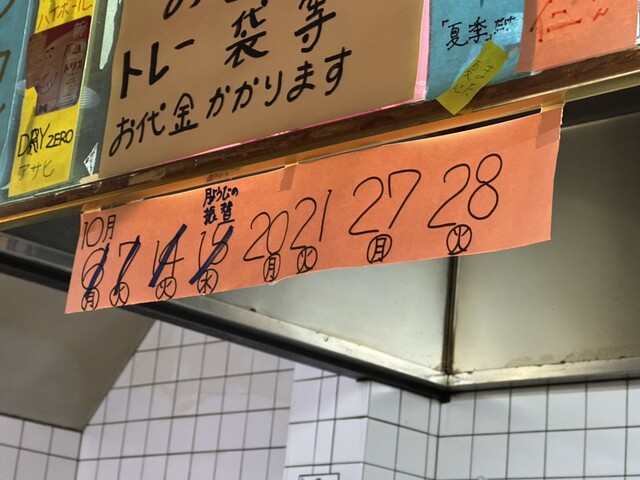 ハイボール
DRY ZERO
アサヒ
等
トレー 袋
お代金かかります
「夏季」だけ
10月
月ようびの
振替
6 7 14 15 20 21 27 28
月 火 火 水 月 火 月 火